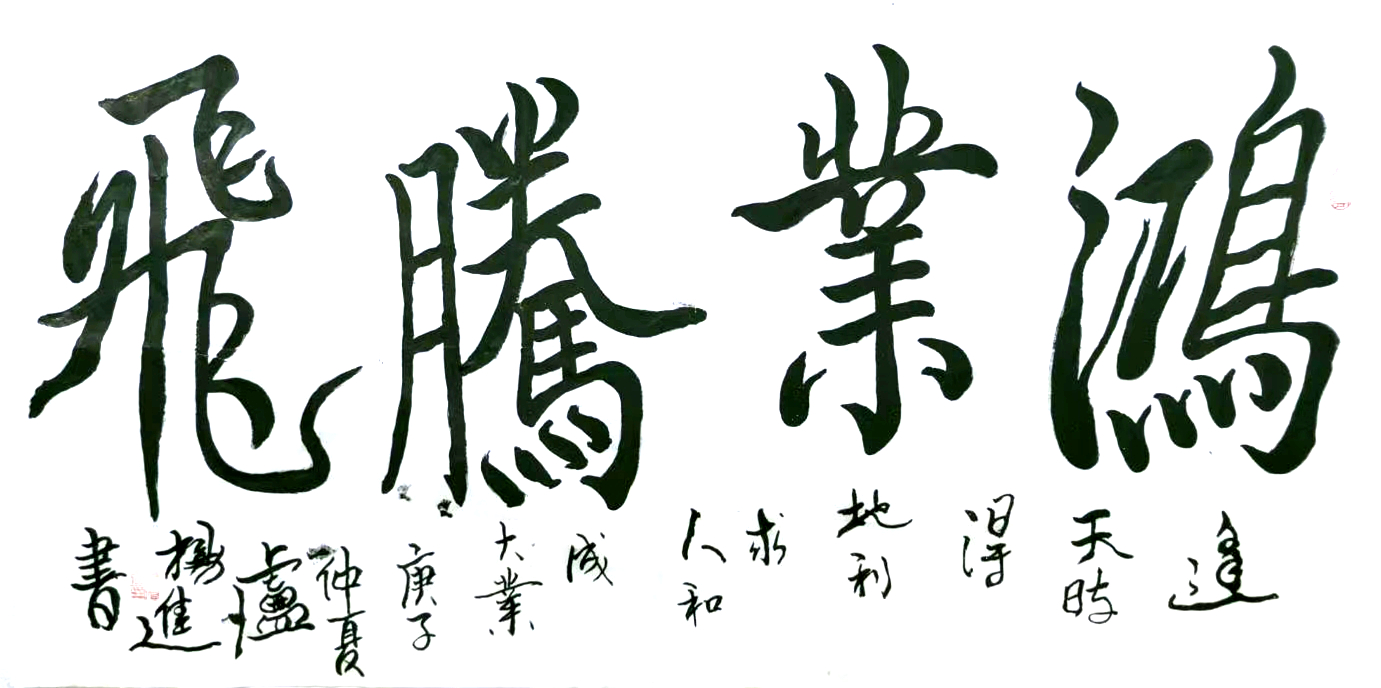 鴻業騰飛
逢
天時
得
地利
求
人和
成
大業
庚子
仲夏
盧
楊進
書